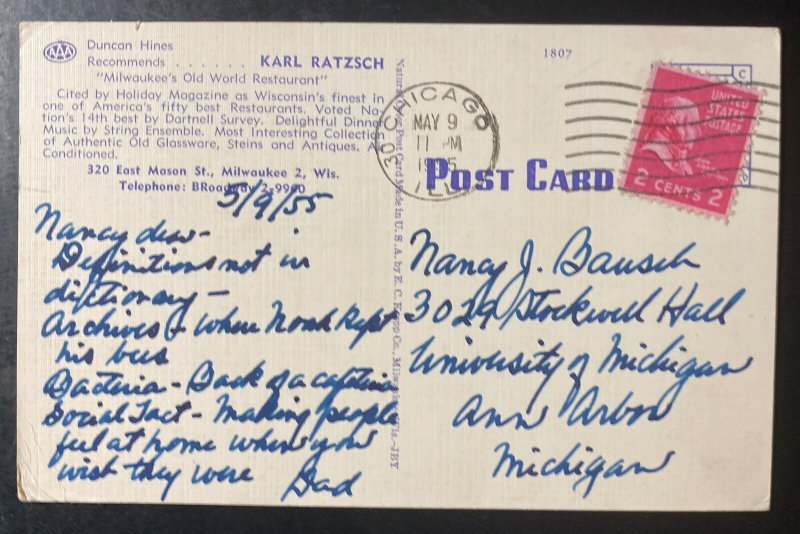 Duncan Hines
Recommends . . . . . . KARL RATZSCH
"Milwaukee's Old World Restaurant"
Cited by Holiday Magazine as Wisconsin's finest in
one of America's fifty best Restaurants. Voted Na-
tion's 14th best by Dartnell Survey. Delightful Dinner
Music by String Ensemble. Most Interesting Collection
of Authentic Old Glassware, Steins and Antiques. A
Conditioned.
320 East Mason St., Milwaukee 2, Wis.
Telephone: BRoadway 2-9900
AAA
5/9/55
Nancy dear -
Definitions not in
dictionary -
Archives - Where Noah Kept
his bees
Bacteria - Back of a cafeteria
Social Tact - Making people
feel at home when you
wish they were
Dad
Natural Color Post Card Made in U. S. A. by E. C. Kropp Co., Milwaukee, Wis.-JBY
1807
CHICAGO
30
MAY 9
11 PM
ILL
POST CARD
UNITED
STATES
POSTAGE
2 CENTS 2
C
Nancy J. Bausch
3029 Stockwell Hall
University of Michigan
Ann Arbor
Michigan